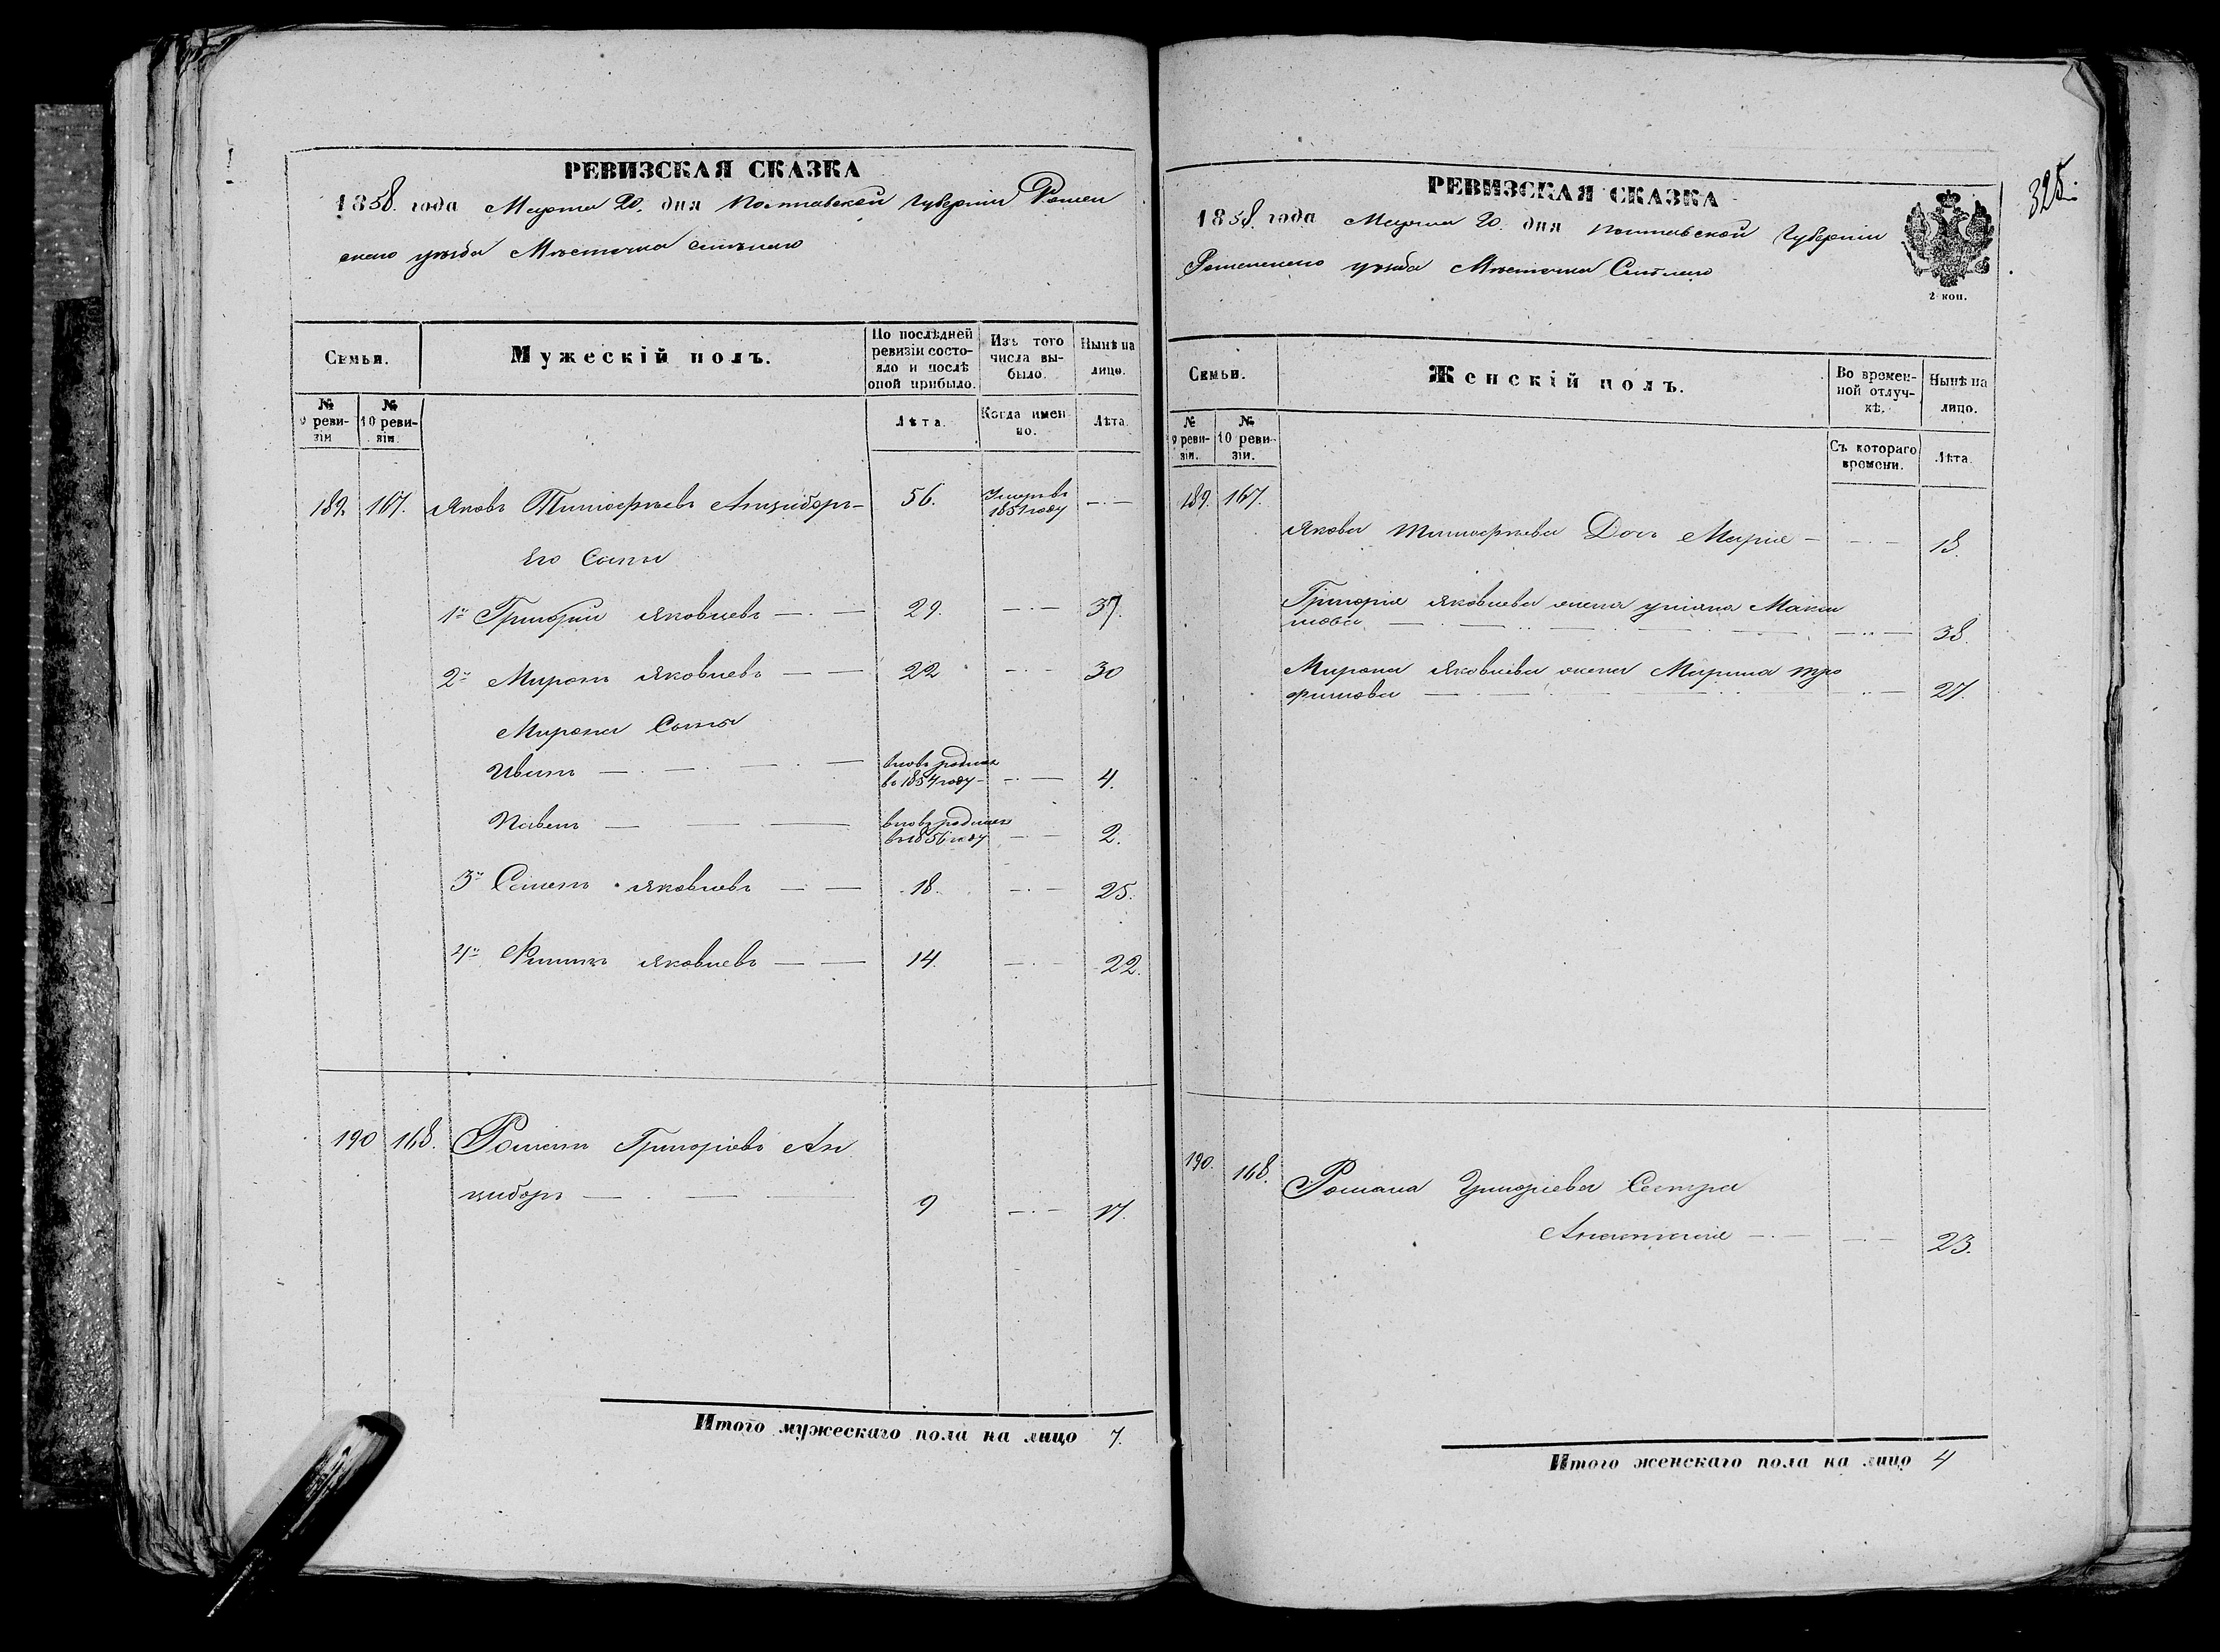 РЕВИЗСКАЯ СКАЗКА
1858. года Марта 20. дня Полтавской губерніи Ромен
скаго уѣзда Мѣстечка Смѣлаго
Семьи.
Мужескій полъ.
По послѣдней ревизіи состояло и послѣ оной прибыло.
Изъ того числа выбыло.
Нынѣ на лицо.
№ 9 ревизіи
№ 10 ревизіи.
Лѣта.
Когда именно.
Лѣта.
189. 167. Яковъ Тимофѣевъ Анцыборъ — 56. Умеръ въ 1851 году — · —
Его Сыны
1й Григорий Яковлевъ — · — 29. — · — 37.
2й Миронъ Яковлевъ — — 22 — · — 30
Мирона Сыны
Иванъ — · — · — · — вновь рожден въ 1854 году — — · — 4.
Павелъ — — — вновь рожден въ 1856 году — · — 2.
3й Семенъ Яковлевъ — — 18. — · — 25.
4й Яковлевъ — — 14. — · — 22.
190 168. Романъ Григоріевъ Ан
цыборъ — · — 9 — · — 17.
Итого мужескаго пола на лицо 7.
325.
РЕВИЗСКАЯ СКАЗКА
1858. года Марта 20. дня Полтавской Губерніи
Роменскаго уѣзда Мѣстечка Смѣлаго
2 коп.
Семьи.
Женскій полъ.
Во временной отлучкѣ.
Нынѣ на лицо.
№ 9 ревизіи.
№ 10 ревизіи.
Съ котораго времени.
Лѣта.
189. 167.
Якова Тимофѣева Дочь Марія — — · — 18.
Григорія Яковлева жена Уліана Макси
мова — · — — · — 38
Мирона Яковлева жена Марина Тро
фимова — · — — · — 27.
190. 168. Романа Григоріева Сестра
Анастасія — · — — · — 23.
Итого женскаго пола на лицо 4